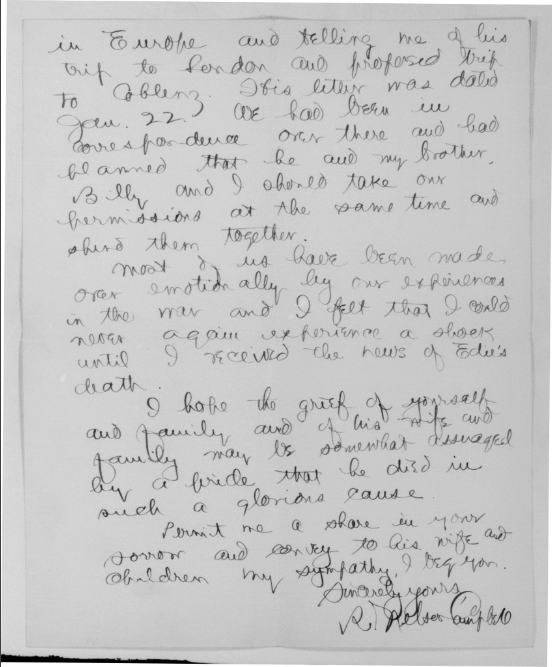 in Europe and telling me of his
trip to London and proposed trip
to Coblenz. This letter was dated
Jan. 22. We had been in
correspondence over there and had
planned that he and my brother,
Billy and I should take our
permissions at the same time and
spend them together.
Most of us have been made
over emotionally by our experiences
in the war and I felt that I could
never again experience a shock
until I received the news of Edu's
death.
I hope the grief of yourself
and family and of his wife and
family may be somewhat assuaged
by a pride that he died in
such a glorious cause.
Permit me a share in your
sorrow and convey to his wife and
children my sympathy, I beg you.
Sincerely yours,
R. Campbell